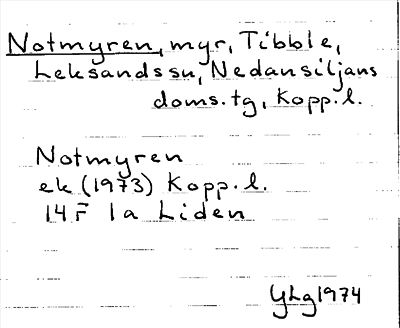 Notmyren, myr, Tibble,
Leksandssn, Nedansiljans
doms.tg, Kopp.l.
Notmyren
ek (1973) Kopp.l.
14F 1a Liden
YLg 1974